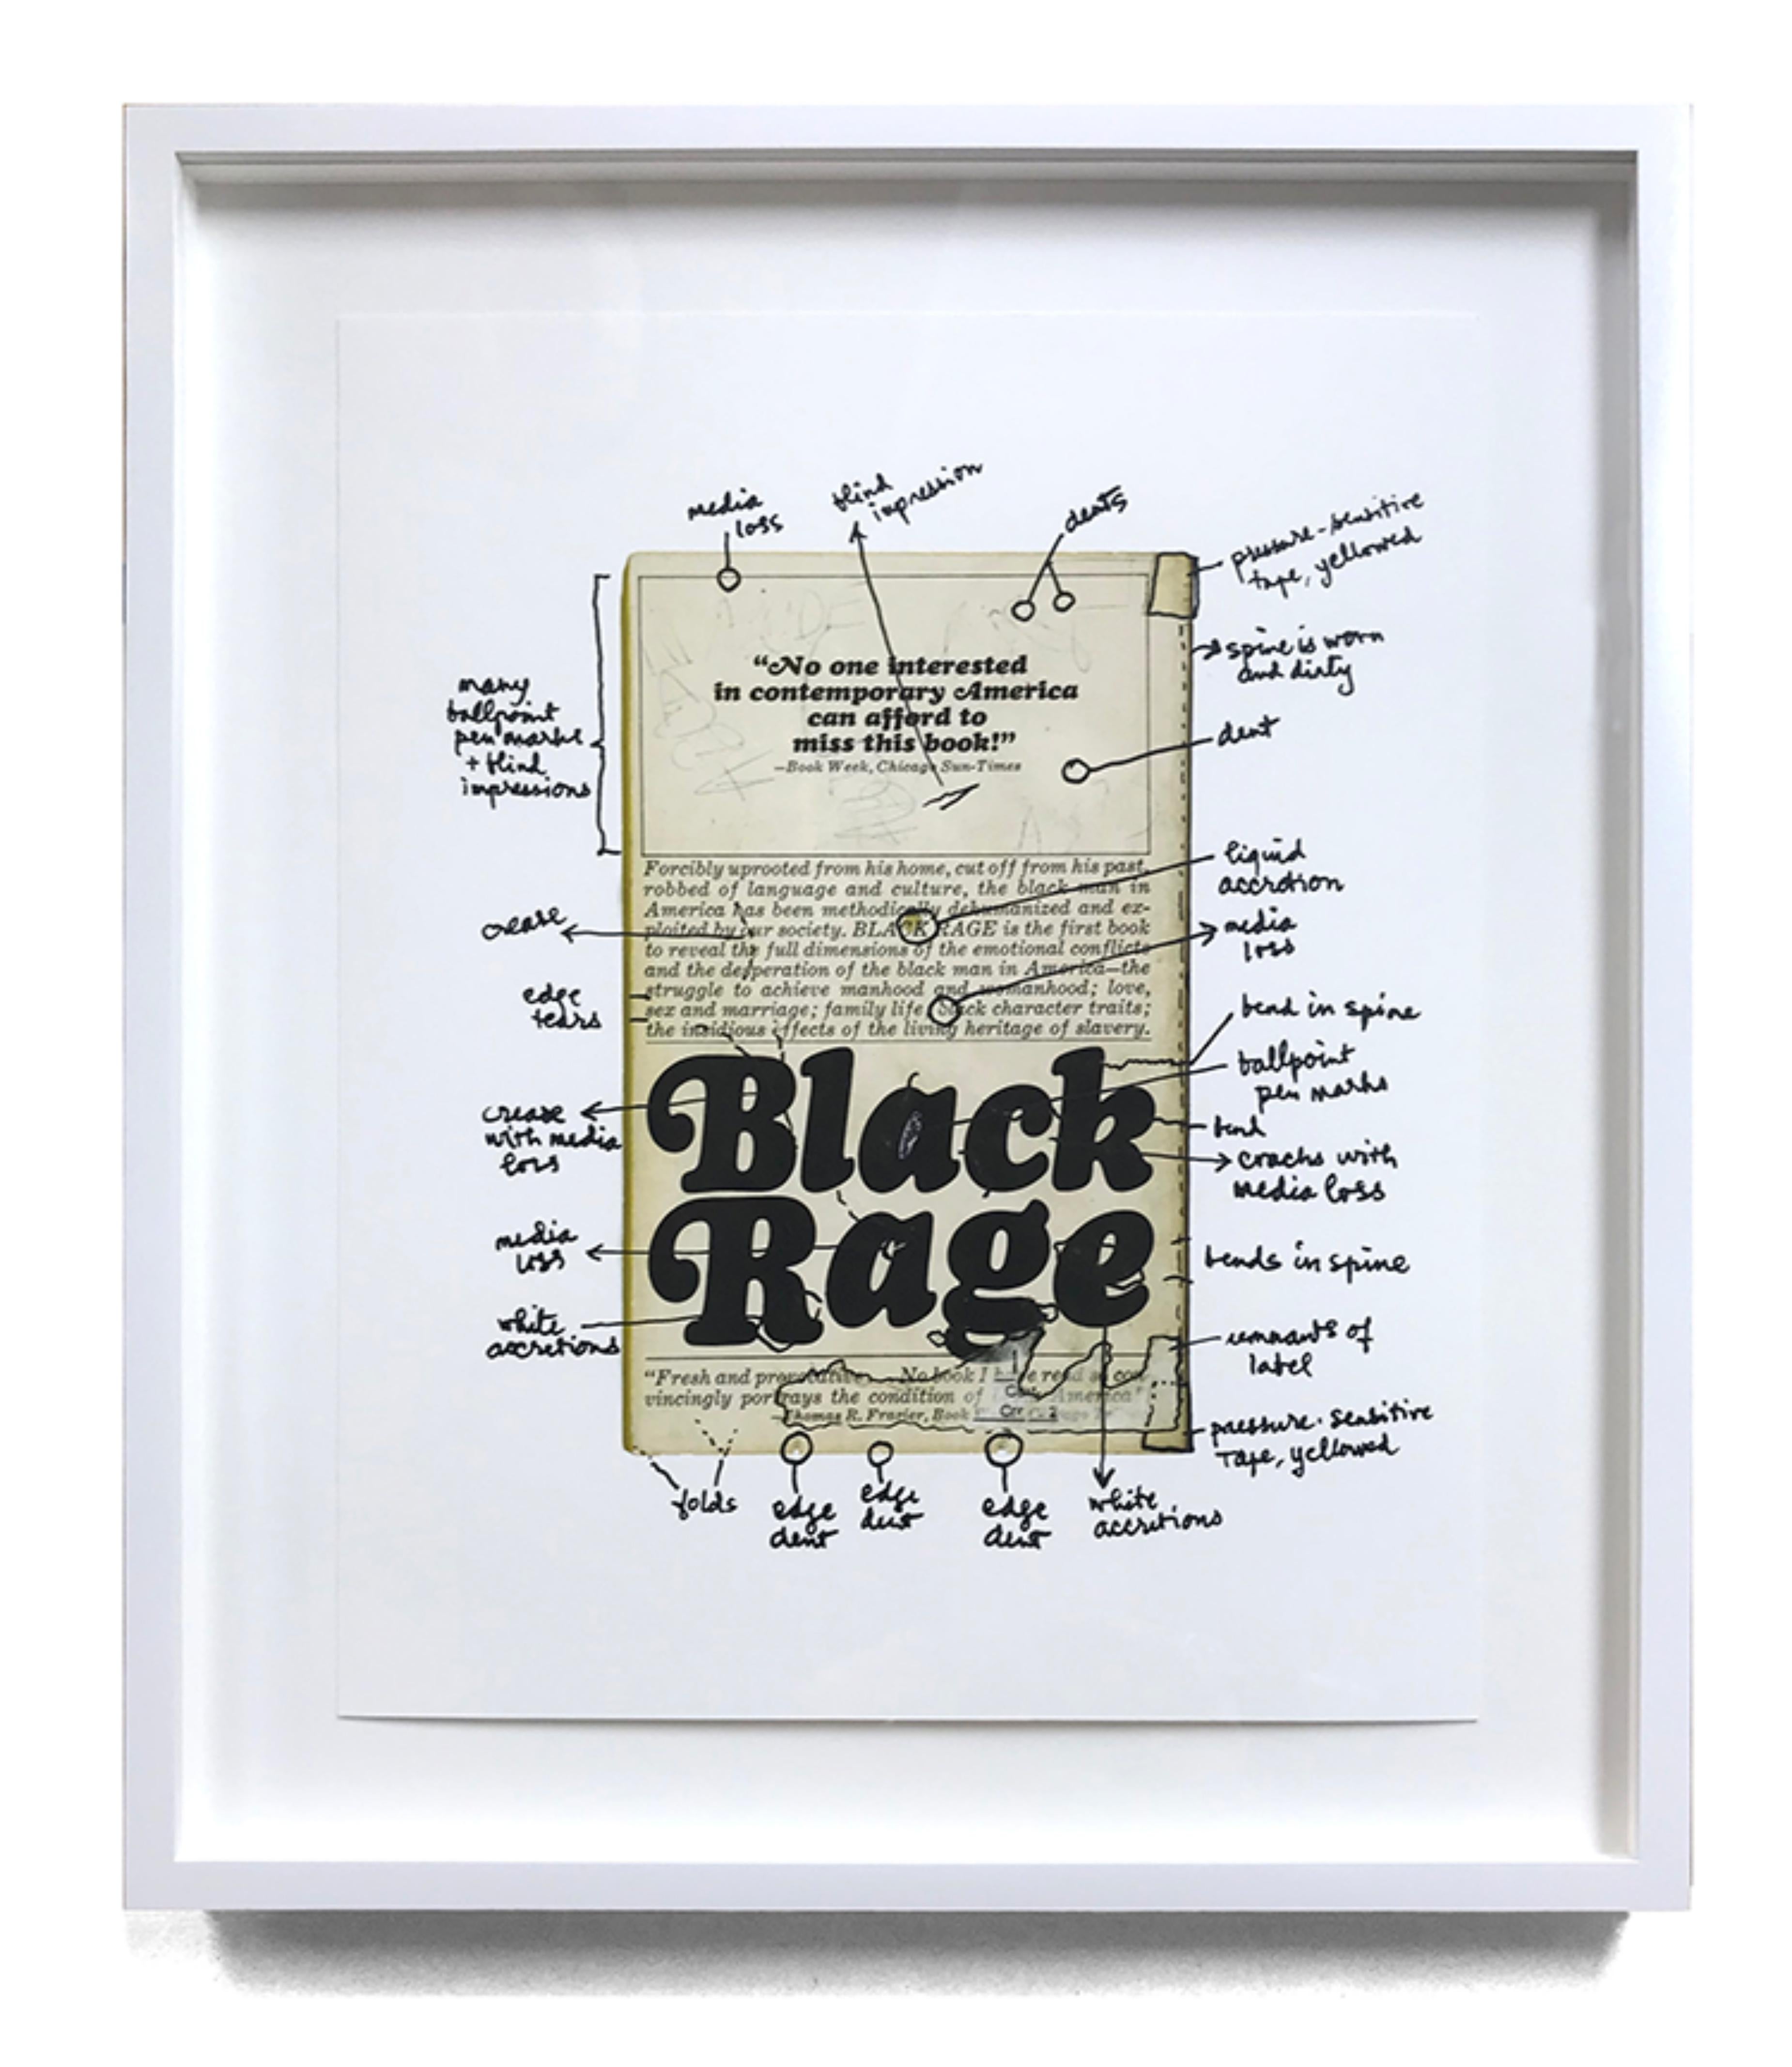 media
loss
blind
impression
dents
pressure-sensitive
tape, yellowed
spine is worn
and dirty
many
ballpoint
pen marks
+ blind
impressions
“No one interested
in contemporary America
can afford to
miss this book!”
—Book Week, Chicago Sun-Times
dent
Forcibly uprooted from his home, cut off from his past,
robbed of language and culture, the black man in
America has been methodically dehumanized and ex-
ploited by our society. BLACK RAGE is the first book
to reveal the full dimensions of the emotional conflicts
and the desperation of the black man in America—the
struggle to achieve manhood and womanhood; love,
sex and marriage; family life; black character traits;
the insidious effects of the living heritage of slavery.
liquid
accretion
media
loss
crease
edge
tears
bend in spine
ballpoint
pen marks
bend
cracks with
media loss
crease
with media
loss
Black
Rage
media
loss
bends in spine
white
accretions
remnants of
label
“Fresh and provocative ... No book I have read so con-
vincingly portrays the condition of America”
—Thomas R. Frazier, Book
pressure-sensitive
tape, yellowed
folds
edge
dent
edge
dent
edge
dent
white
accretions